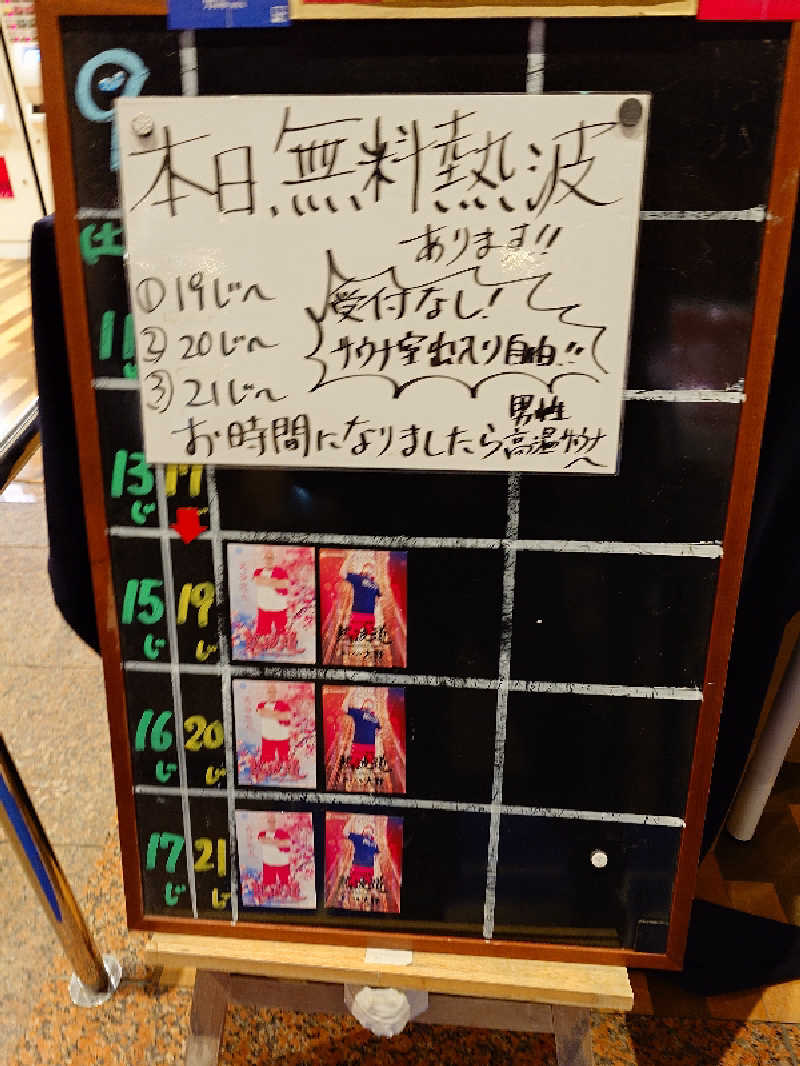 本日、無料熱波
あります!!
①19じ〜
②20じ〜
③21じ〜
受付なし!
サウナ室出入り自由!!
男性
お時間になりましたら高温サウナ
〜
(土
11
13じ 17
15じ 19じ
熱波道
16じ 20じ
熱波道
17じ 21じ
熱波道